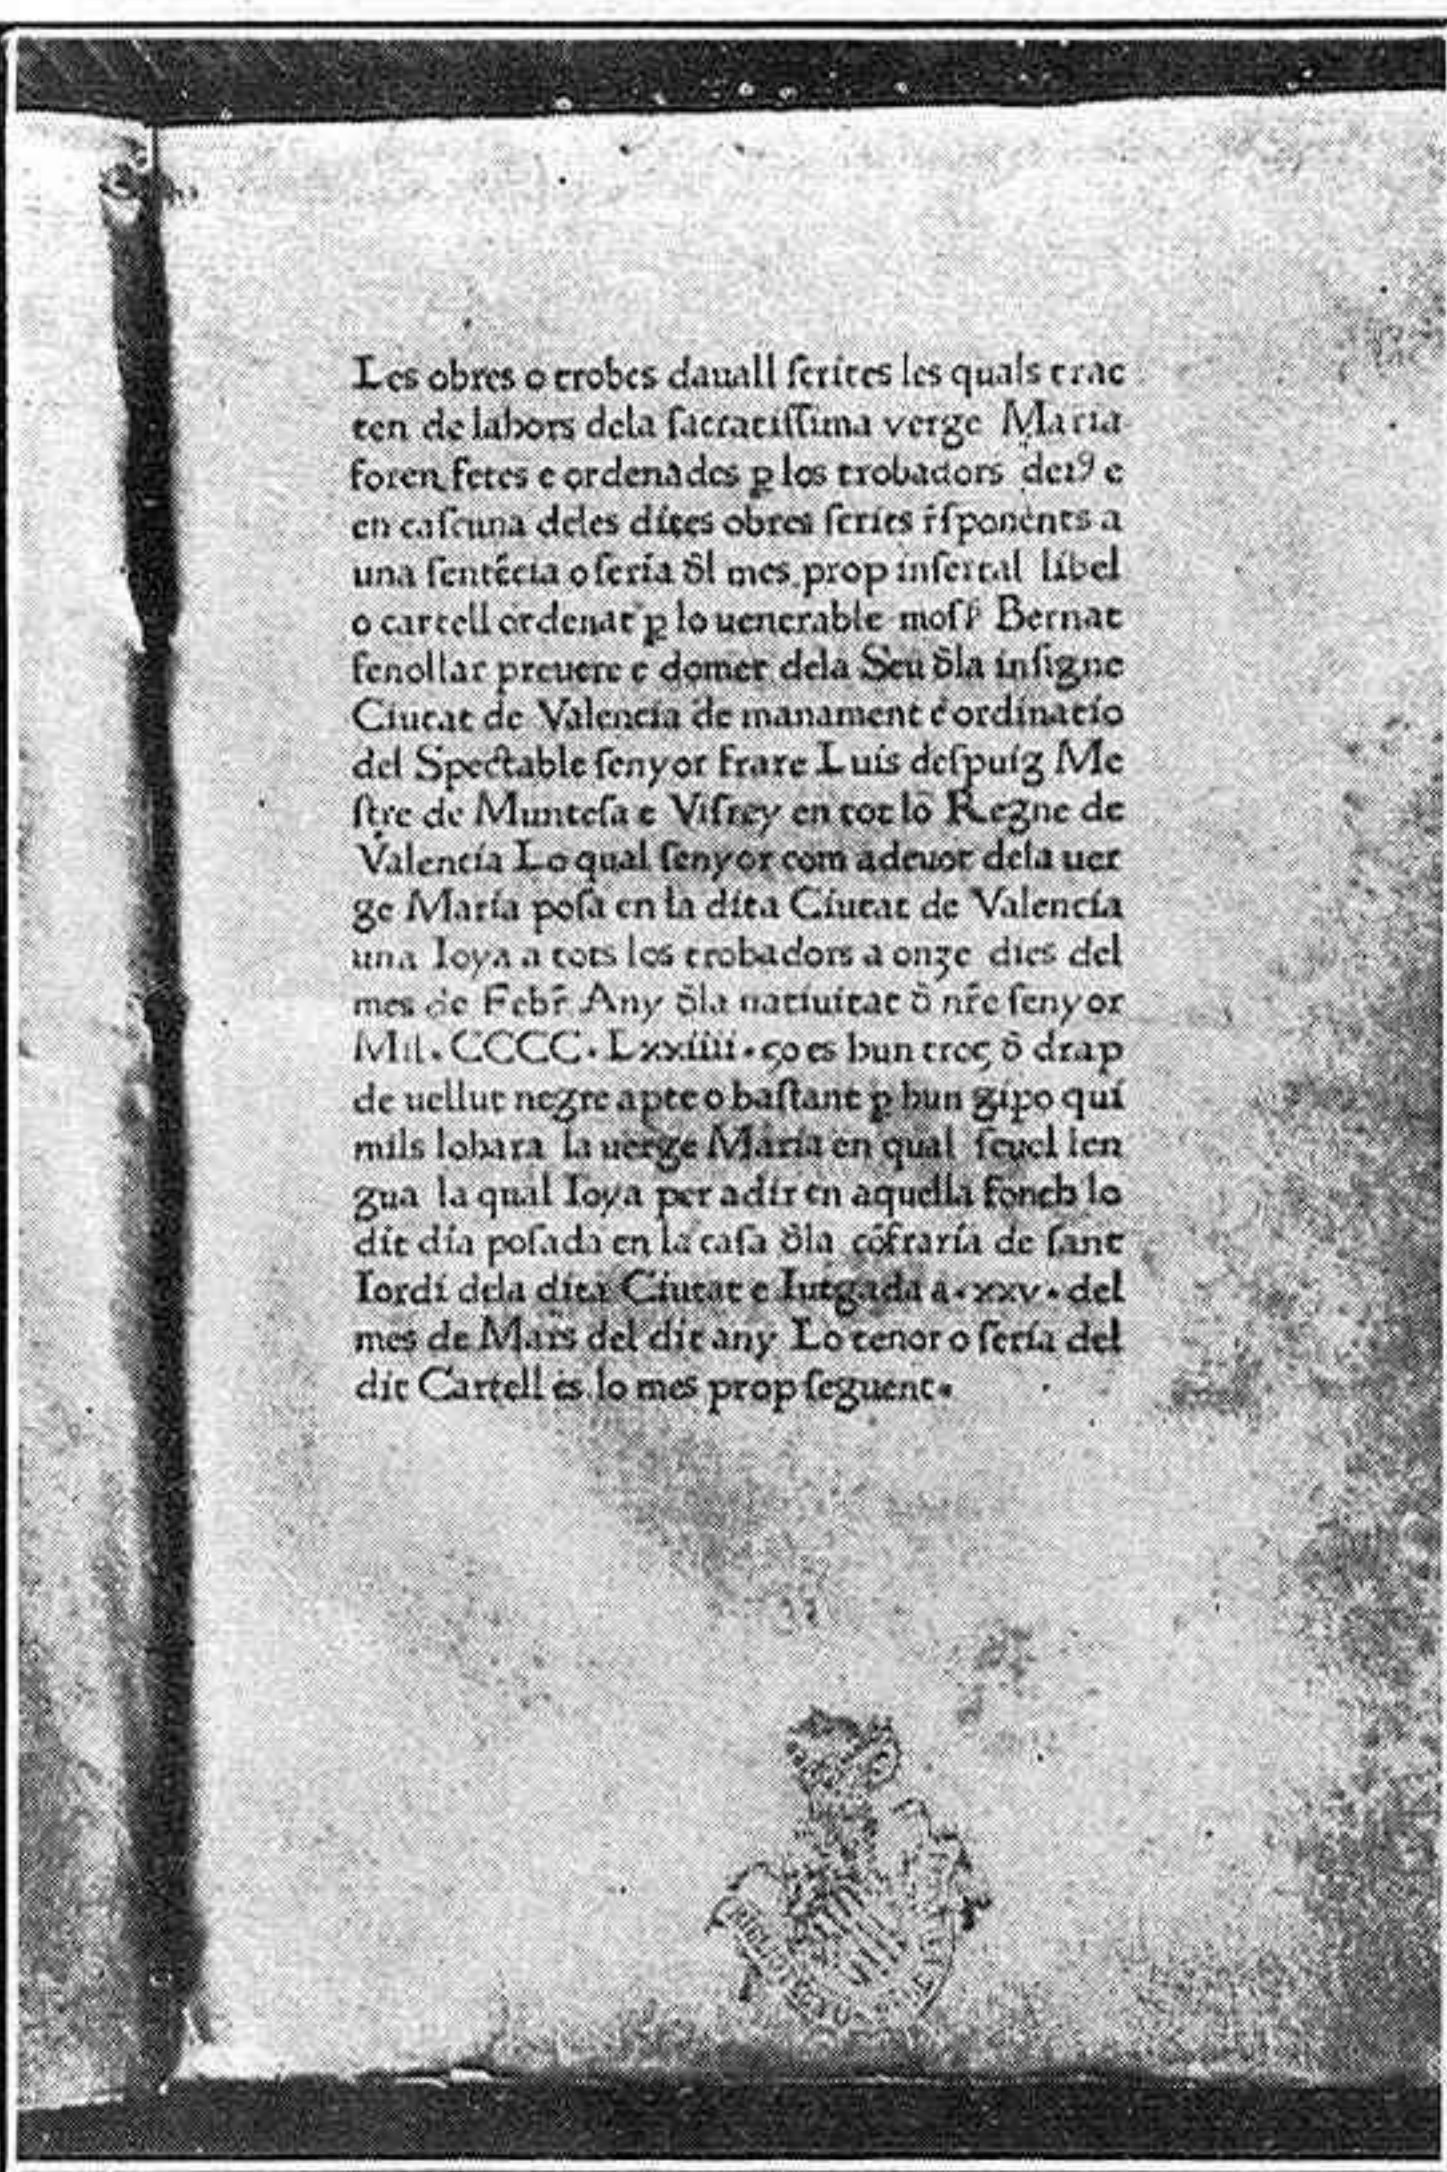 Les obres o trobes dauall scrites les quals trac
ten de lahors dela sacratissima verge Maria
foren fetes e ordenades ꝑ los trobadors deiꝰ e
en cascuna deles dites obres scrits r̃sponents a
una sentẽcia o seria d̃l mes prop insertal libel
o cartell ordenat ꝑ lo uenerable moss̃ Bernat
fenollar preuere e domer dela Seu d̃la insigne
Ciutat de Valencia de manament e ordinacio
del Spectable senyor frare Luis despuig Me
stre de Muntesa e Visrey en tot lo Regne de
Valencia Lo qual senyor com adeuot dela uer
ge Maria posa en la dita Ciutat de Valencia
una Ioya a tots los trobadors a onze dies del
mes de Febr̃ Any d̃la natiuitat d̃ nr̃e senyor
Mil. CCCC. Lxxiiii. ço es hun troç d̃ drap
de uellut negre apte o bastant ꝑ hun gipo qui
mils lohara la uerge Maria en qual seuel len
gua la qual Ioya per adir en aquella fonch lo
dit dia posada en la casa d̃la cõfraria de sant
Iordi dela dita Ciutat e Iutgada a.xxv. del
mes de Mars del dit any Lo tenor o seria del
dit Cartell es lo mes prop seguent.